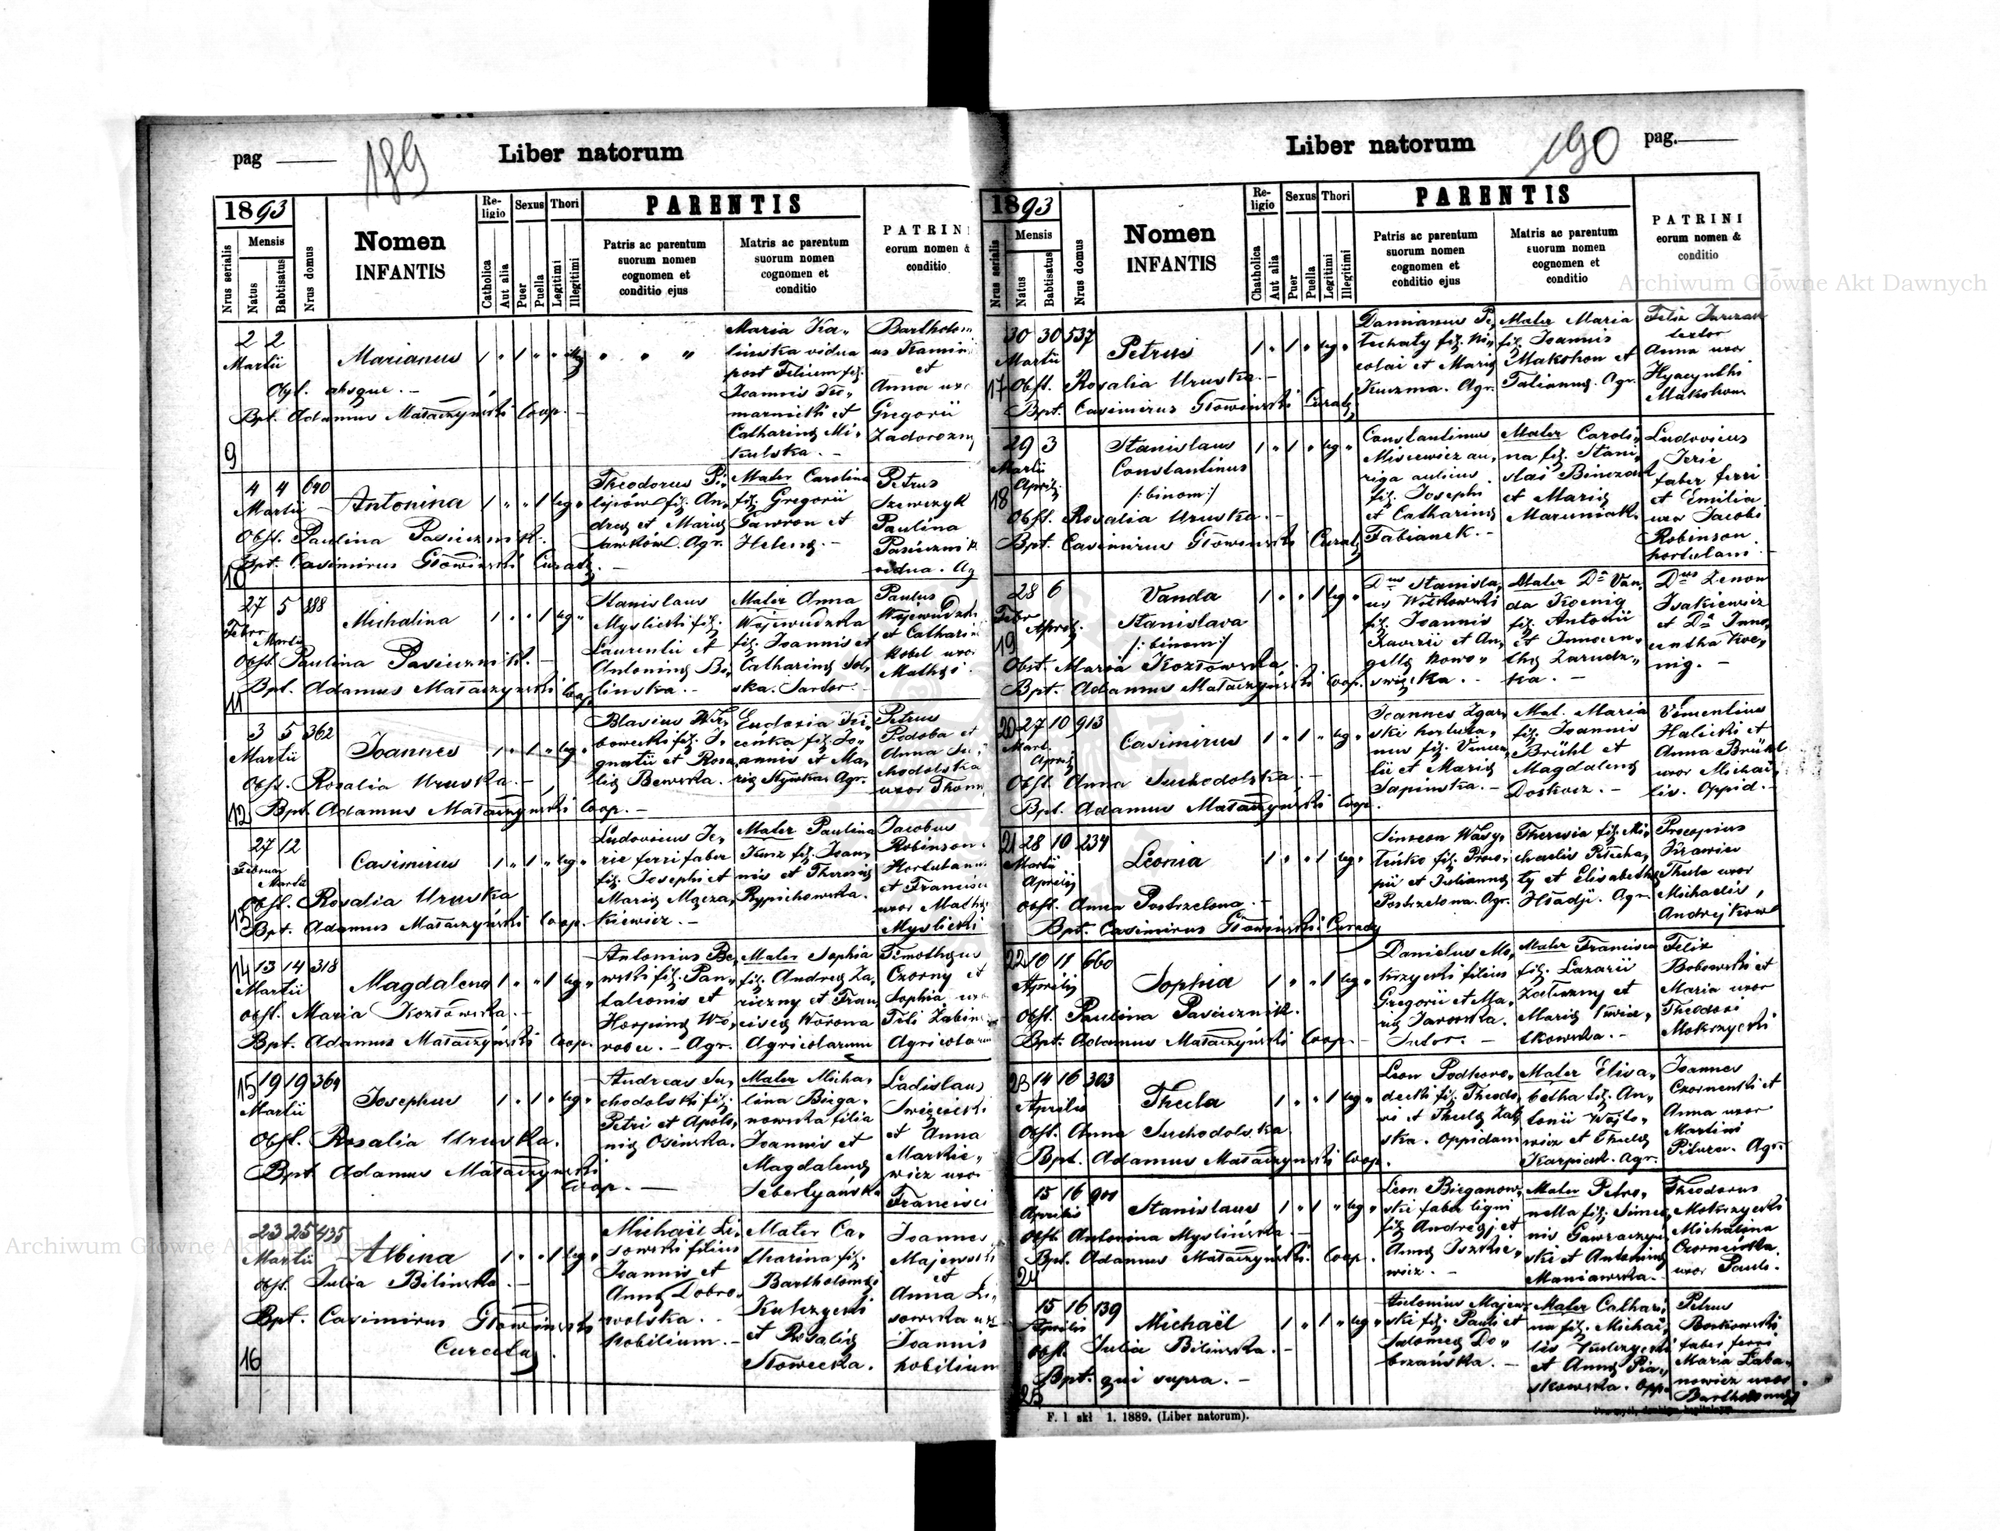 pag
189
Liber natorum
1893
Nrus serialis
Mensis
Natus
Babtisatus
Nrus domus
Nomen
INFANTIS
Re-
ligio
Catholica
Aut alia
Sexus
Puer
Puella
Thori
Legitimi
Illegitimi
PARENTIS
Patris ac parentum
suorum nomen
cognomen et
conditio ejus
Matris ac parentum
suorum nomen
cognomen et
conditio
PATRINI
eorum nomen &
conditio
2 2
Martii
Marianus
Obst. absque. -
Bpt. Adamus Mataczyński Coop. -
9
Maria Ka-
linska vidua
post Filium fil.
Joannis
et
Catharinę Mi-
kulska. -
Bartholom
us Kamin
et
Anna uxo
Gregorii
Zadorozny
4 4 640
Martii
Antonina
Obst. Paulina Pasiecznik.
Bpt. Casimirus Głowiński Curatę
10
Theodorus Pi-
lipców fil. An-
dreę et Marię
Sawków. Agr.
Mater Carolina
fil. Gregorii
Gawron et
Helenę. -
Petrus
Szewczyk
Paulina
Pasieznik
vidua. Ag
27 5 888
Febr. Martii
Michalina
Obst. Paulina Pasiecznik. -
Bpt. Adamus Mataczyński Coop.
11
Stanislaus
Myslicki fil.
Laurentii et
Antoninę Be-
linska. -
Mater Anna
Wojewudzka
fil. Joannis et
Catharinę Sol-
ska. Sartor. -
Paulus
Wojewudzki
et Catharin
Kobel uxor
Mathęi
3 5 362
Martii
Joannes
Obst. Rosalia Uruska. -
Bpt. Adamus Mataczyński Coop. -
12
Blasius
bowecki fil. I-
gnatii et Rosa-
lię Bewska.
Eudoxia
fil. Jo-
annis et Ma-
rię Agr.
Petrus
Podoba et
Anna Su-
chodolska
uxor Thom
27 12
Februar Martii
Casimirus
Obst. Rosalia Uruska
Bpt. Adamus Mataczyński Coop.
13
Ludovicus Je-
rie ferri faber
fil. Josephi et
Marię Mącza-
kiewicz. -
Mater Paulina
Kusz fil. Joan-
nis et Theresię
Rypichowska.
Jacobus
Robinson
Hortulanus
et Francisc
uxor Mathę
Myslicki
14 13 14 318
Martii
Magdalena
Obst. Maria Kozłowska. -
Bpt. Adamus Mataczyński Coop.
Antonius Be-
wski fil. Pan-
talionis et
Horpinę Wo-
robec. - Agr.
Mater Sophia
fil. Andreę Za-
riczny et Fran-
ciscę Worona
Agricolarum
Timotheus
Czorny et
Sophia uxo
Fili Zabin
Agricolarum
15 19 19 364
Martii
Josephus
Obst. Rosalia Uruska.
Bpt. Adamus Mataczyński
Coop. -
Andreas Su-
chodolski fil.
Petri et Apolo-
nię Osinska.
Mater Micha-
lina Birga-
nowska filia
Joannis et
Magdalenę
Seberlyańska
Ladislaus
Święcicki
et Anna
Markie-
wicz uxor
Francisci
23 25 435
Martii
Albina
Obst. Julia Bilinska. -
Bpt. Casimirus Głowiński
Curatę
16
Michaël Li-
sowski filius
Joannis et
Annę Dobro-
wolska. -
Nobilium. -
Mater Ca-
tharina fil.
Bartholomęi
Kulczycki
et Rosalię
Słowecka.
Joannes
Majewski
et
Anna Li-
sowska uxo
Joannis
nobilium
190
Liber natorum
pag.
1893
Nrus serialis
Mensis
Natus
Babtisatus
Nrus domus
Nomen
INFANTIS
Re-
ligio
Catholica
Aut alia
Sexus
Puer
Puella
Thori
Legitimi
Illegitimi
PARENTIS
Patris ac parentum
suorum nomen
cognomen et
conditio ejus
Matris ac parentum
suorum nomen
cognomen et
conditio
PATRINI
eorum nomen &
conditio
30 30 537
Martii
Petrus
17 Obst. Rosalia Uruska. -
Bpt. Casimirus Głowiński Curatę
Damianus Pe-
tuchaty fil. Ni-
colai et Marię
Kuzma. Agr.
Mater Maria
fil. Joannis
Makohon et
Tatiannę. Agr.
Felix Jurczak
textor
Anna uxor
Hyacynthi
Makohon
29 3
Martii Aprilis
Stanislaus
Constantinus
/:binom:/
18
Obst. Rosalia Uruska. -
Bpt. Casimirus Głowiński Curatę
Constantinus
Misiewicz au-
riga aulicus
fil. Josephi
et Catharinę
Fabianek. -
Mater Caroli-
na fil. Stani-
slai Binczak
et Marię
Maruniak.
Ludovicus
Jerie
faber ferri
et Emilia
uxor Jacobi
Robinson
hortulani. -
28 6
Febr. Aprilis
Vanda
Stanislava
/:binom:/
19
Obst. Maria Kozłowska
Bpt. Adamus Mataczyński Coop.
Dnus Stanisla-
us Witkowski
fil. Joannis
Xaverii et An-
gelę Nowo-
święcka. -
Mater Da Van-
da Koenig
fil. Antonii
et Innocen-
tię Zarudz-
ka. -
Dnus Zenon
Isakiewicz
et Da Inno-
centha Koe-
nig. -
20 27 10 913
Mart. Aprilis
Casimirus
Obst. Anna Suchodolska. -
Bpt. Adamus Mataczyński Coop.
Joannes Zgar-
ski hortula-
nus fil. Vincen-
tii et Marię
Sapinska. -
Mat. Maria
fil. Joannis
Brühl et
Magdalenę
Doskocz. -
Vimentius
Halicki et
Anna Brühl
uxor Michaë-
lis. Oppid. -
21 28 10 234
Martii
Aprilis
Leonia
Obst. Anna Postrzelona. -
Bpt. Casimirus Głowiński. Curatę
Simeon Wasy-
linko fil. Proco-
pii et Juliannę
Postrzelona. Agr.
Theresia fil. Mi-
chaelis Petucha-
ty et Elisabethę
Hładji. Agr.
Procopius
Thecla uxor
Michaelis
Andrejkow
22 10 11 660
Aprilis
Sophia
Obst. Paulina Pasiecznik.
Bpt. Adamus Mataczyński Coop. -
Danielus Mo-
krzycki filius
Gregorii et Ma-
rię Jaworska.
Sutor. -
Mater Francisca
fil. Lazarii
Załuzny et
Marię Kwie-
tkowska. -
Felix
Bobowski et
Maria uxor
Theodosi
Mokrzycki
23 14 16 303
Aprilis
Thecla
Obst. Anna Suchodolska
Bpt. Adamus Mataczyński Coop.
Leon Podhoro-
decki fil. Theodo-
ri et Theclę Zal-
ska. Oppidani
Mater Elisa-
betha fil. An-
tonii Wojto-
wicz et Theclę
Karpiak. Agr.
Joannes
Czornenski et
Anna uxor
Martini
Pitura. Agr.
15 16 900
Aprilis
Stanislaus
Obst. Antonina Myslińska -
Bpt. Adamus Mataczyński. Coop.
24
Leon Birganow-
ski faber ligni
fil. Andreęj et
Annę Iszkie-
wicz. -
Mater Petro-
nella fil. Simeo-
nis Gawraczyń-
ski et Antoninę
Maniawska. -
Theodorus
Mokrzycki
Michalina
Czornińska
uxor Pauli.
15 16 139
Aprilis
Michaël
Obst. Julia Bilinska. -
Bpt. qui supra. -
25
Antonius Majew-
ski fil. Pauli et
Salomeę Do-
brzańska. -
Mater Cathari-
na fil. Michaë-
lis Kulczycki
et Annę Pia-
skowska. Opp.
Petrus
Borkowski
faber ferri
Maria Laba-
nowicz uxor
Bartholomęi
F. 1 skł 1. 1889. (Liber natorum).
Archiwum Główne Akt Dawnych
Archiwum Główne Akt Dawnych